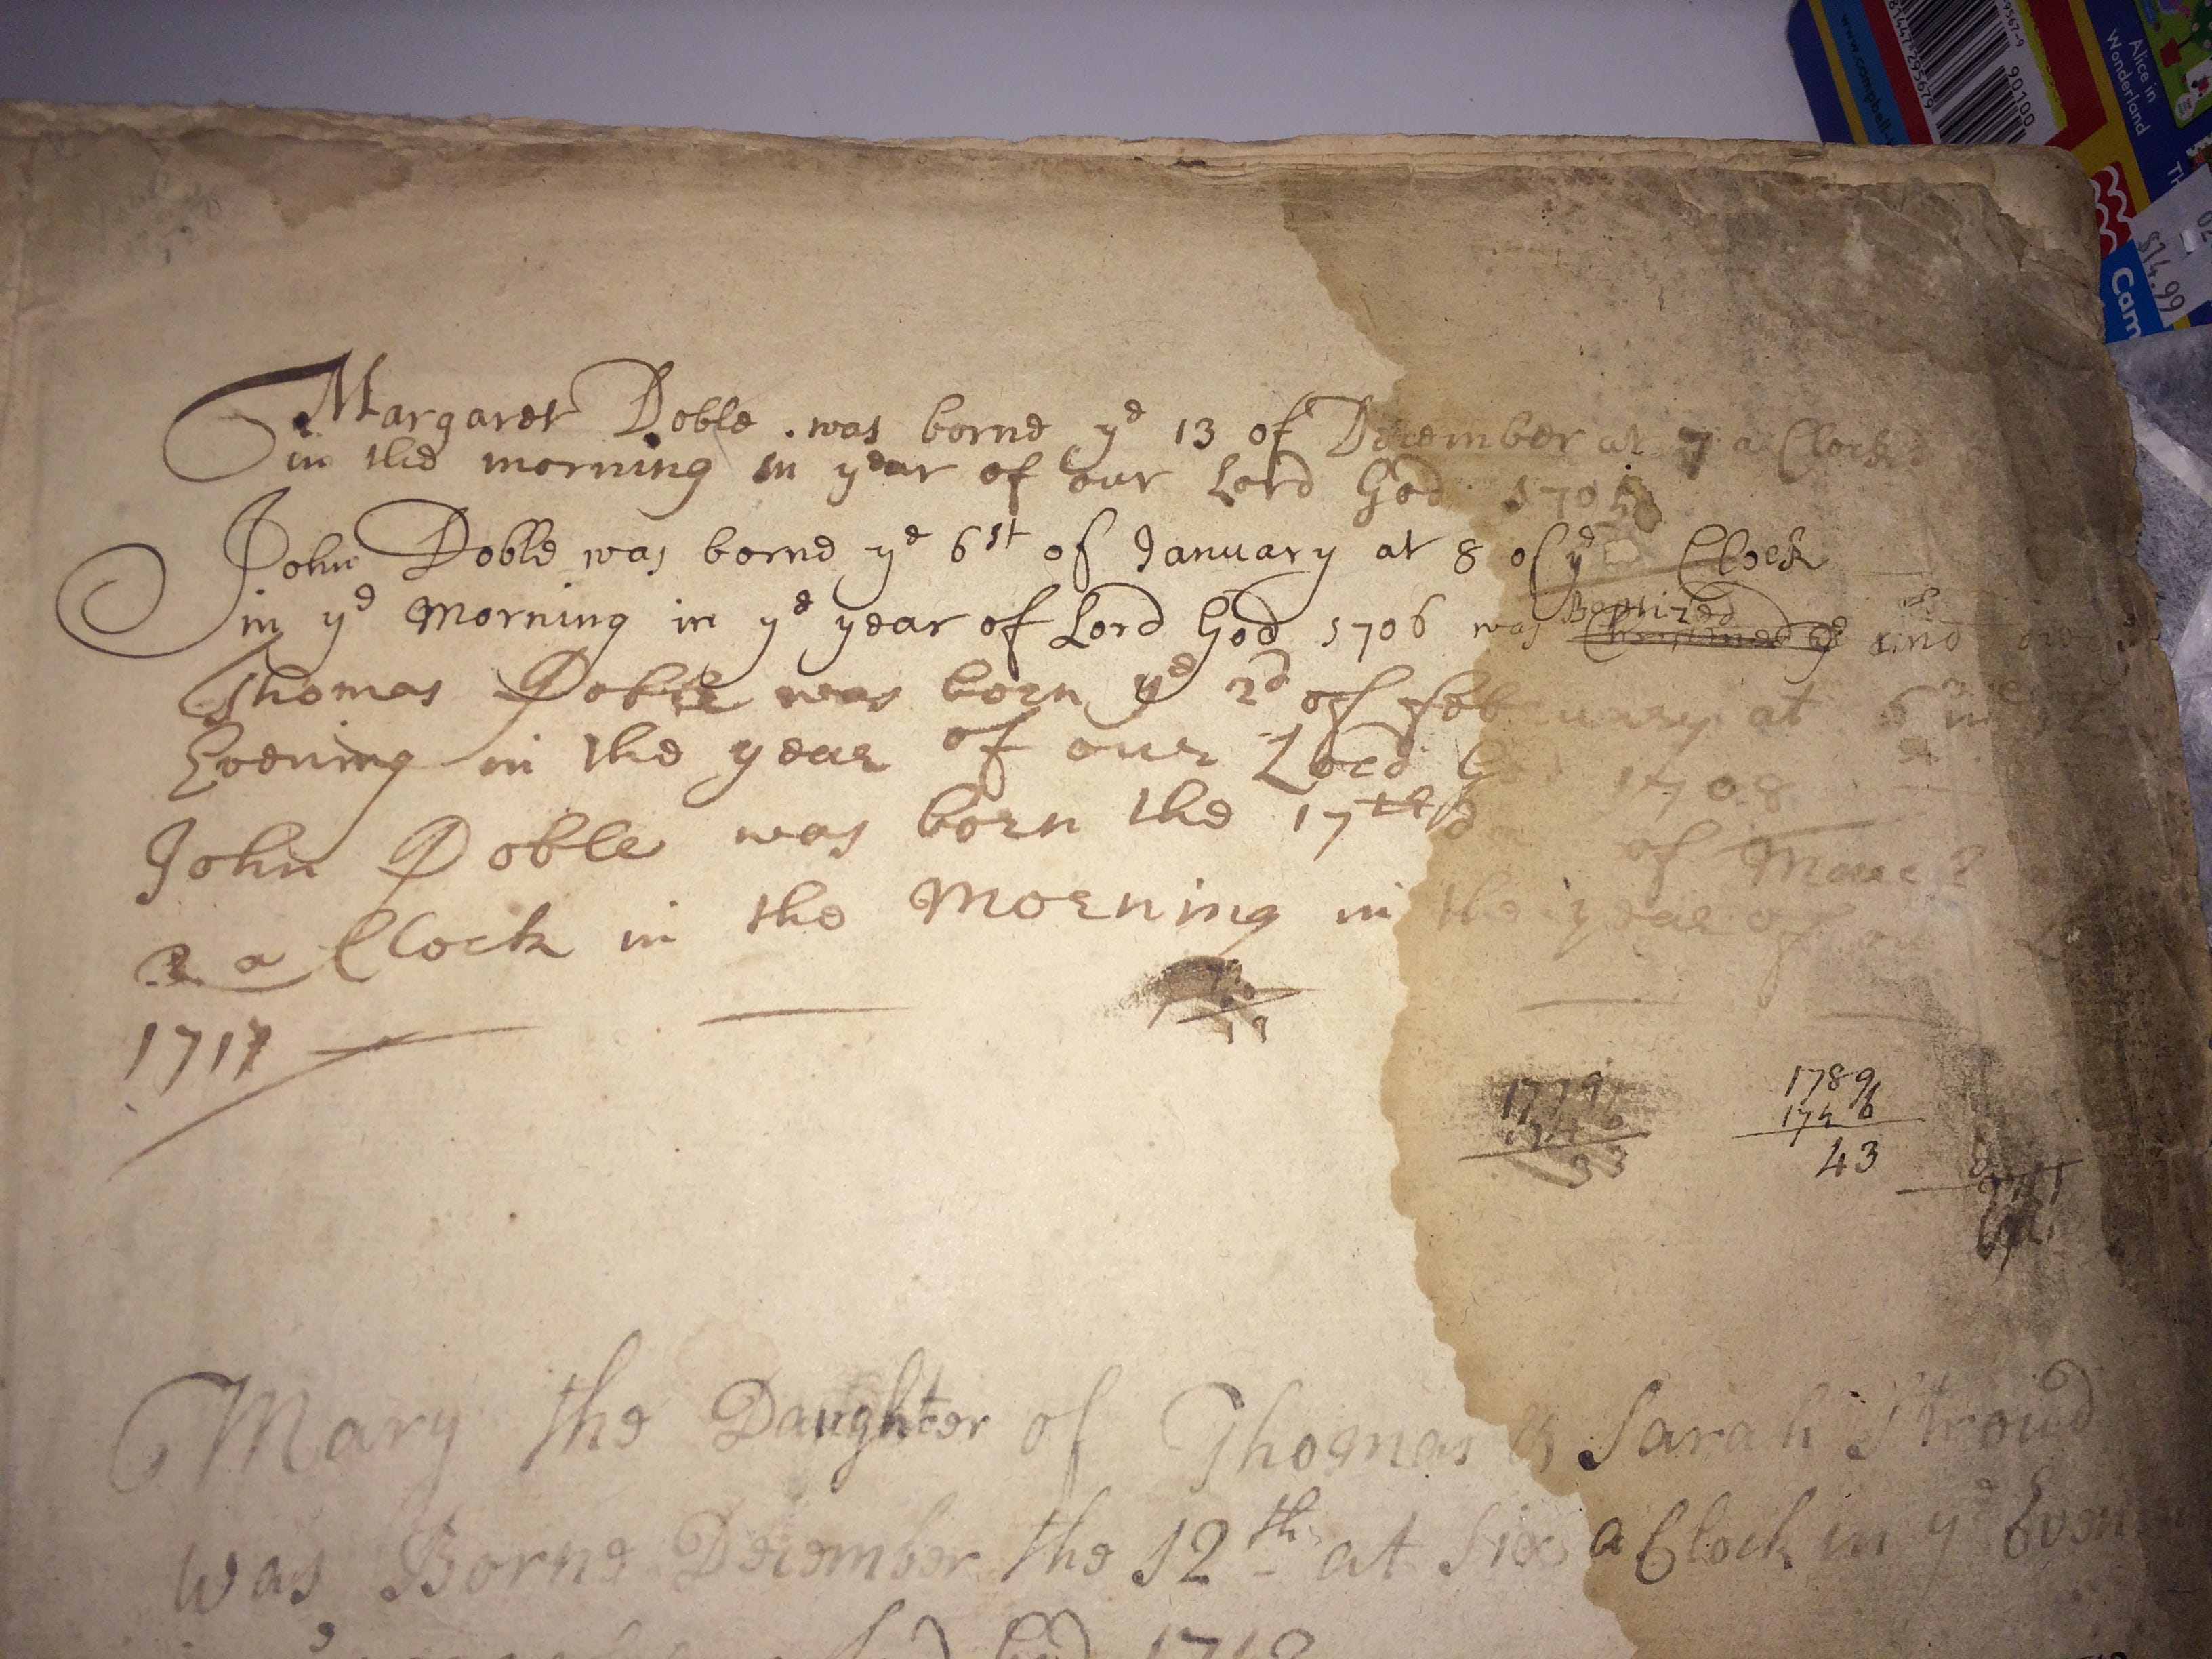 Margaret Doble was borne yᵉ 13 of December at 7 a Clock
in the morning in year of our Lord God
John Doble was borne yᵉ 6st of January at 8 of yᵉ Clock
in yᵉ Morning in yᵉ year of Lord God 1706 was Baptized
Thomas Doble was born yᵉ 2d of february at 6 in
Evening in the year of our Lord God 1708
John Doble was born the 17th of March
a Clock in the Morning in the year of
1717
1789
1746
43
Mary the Daughter of Thomas & Sarah Stroud
was Borne December the 12th at Six a Clock in yᵉ Even
Alice in
Wonderland
90100
$14.99
Cam